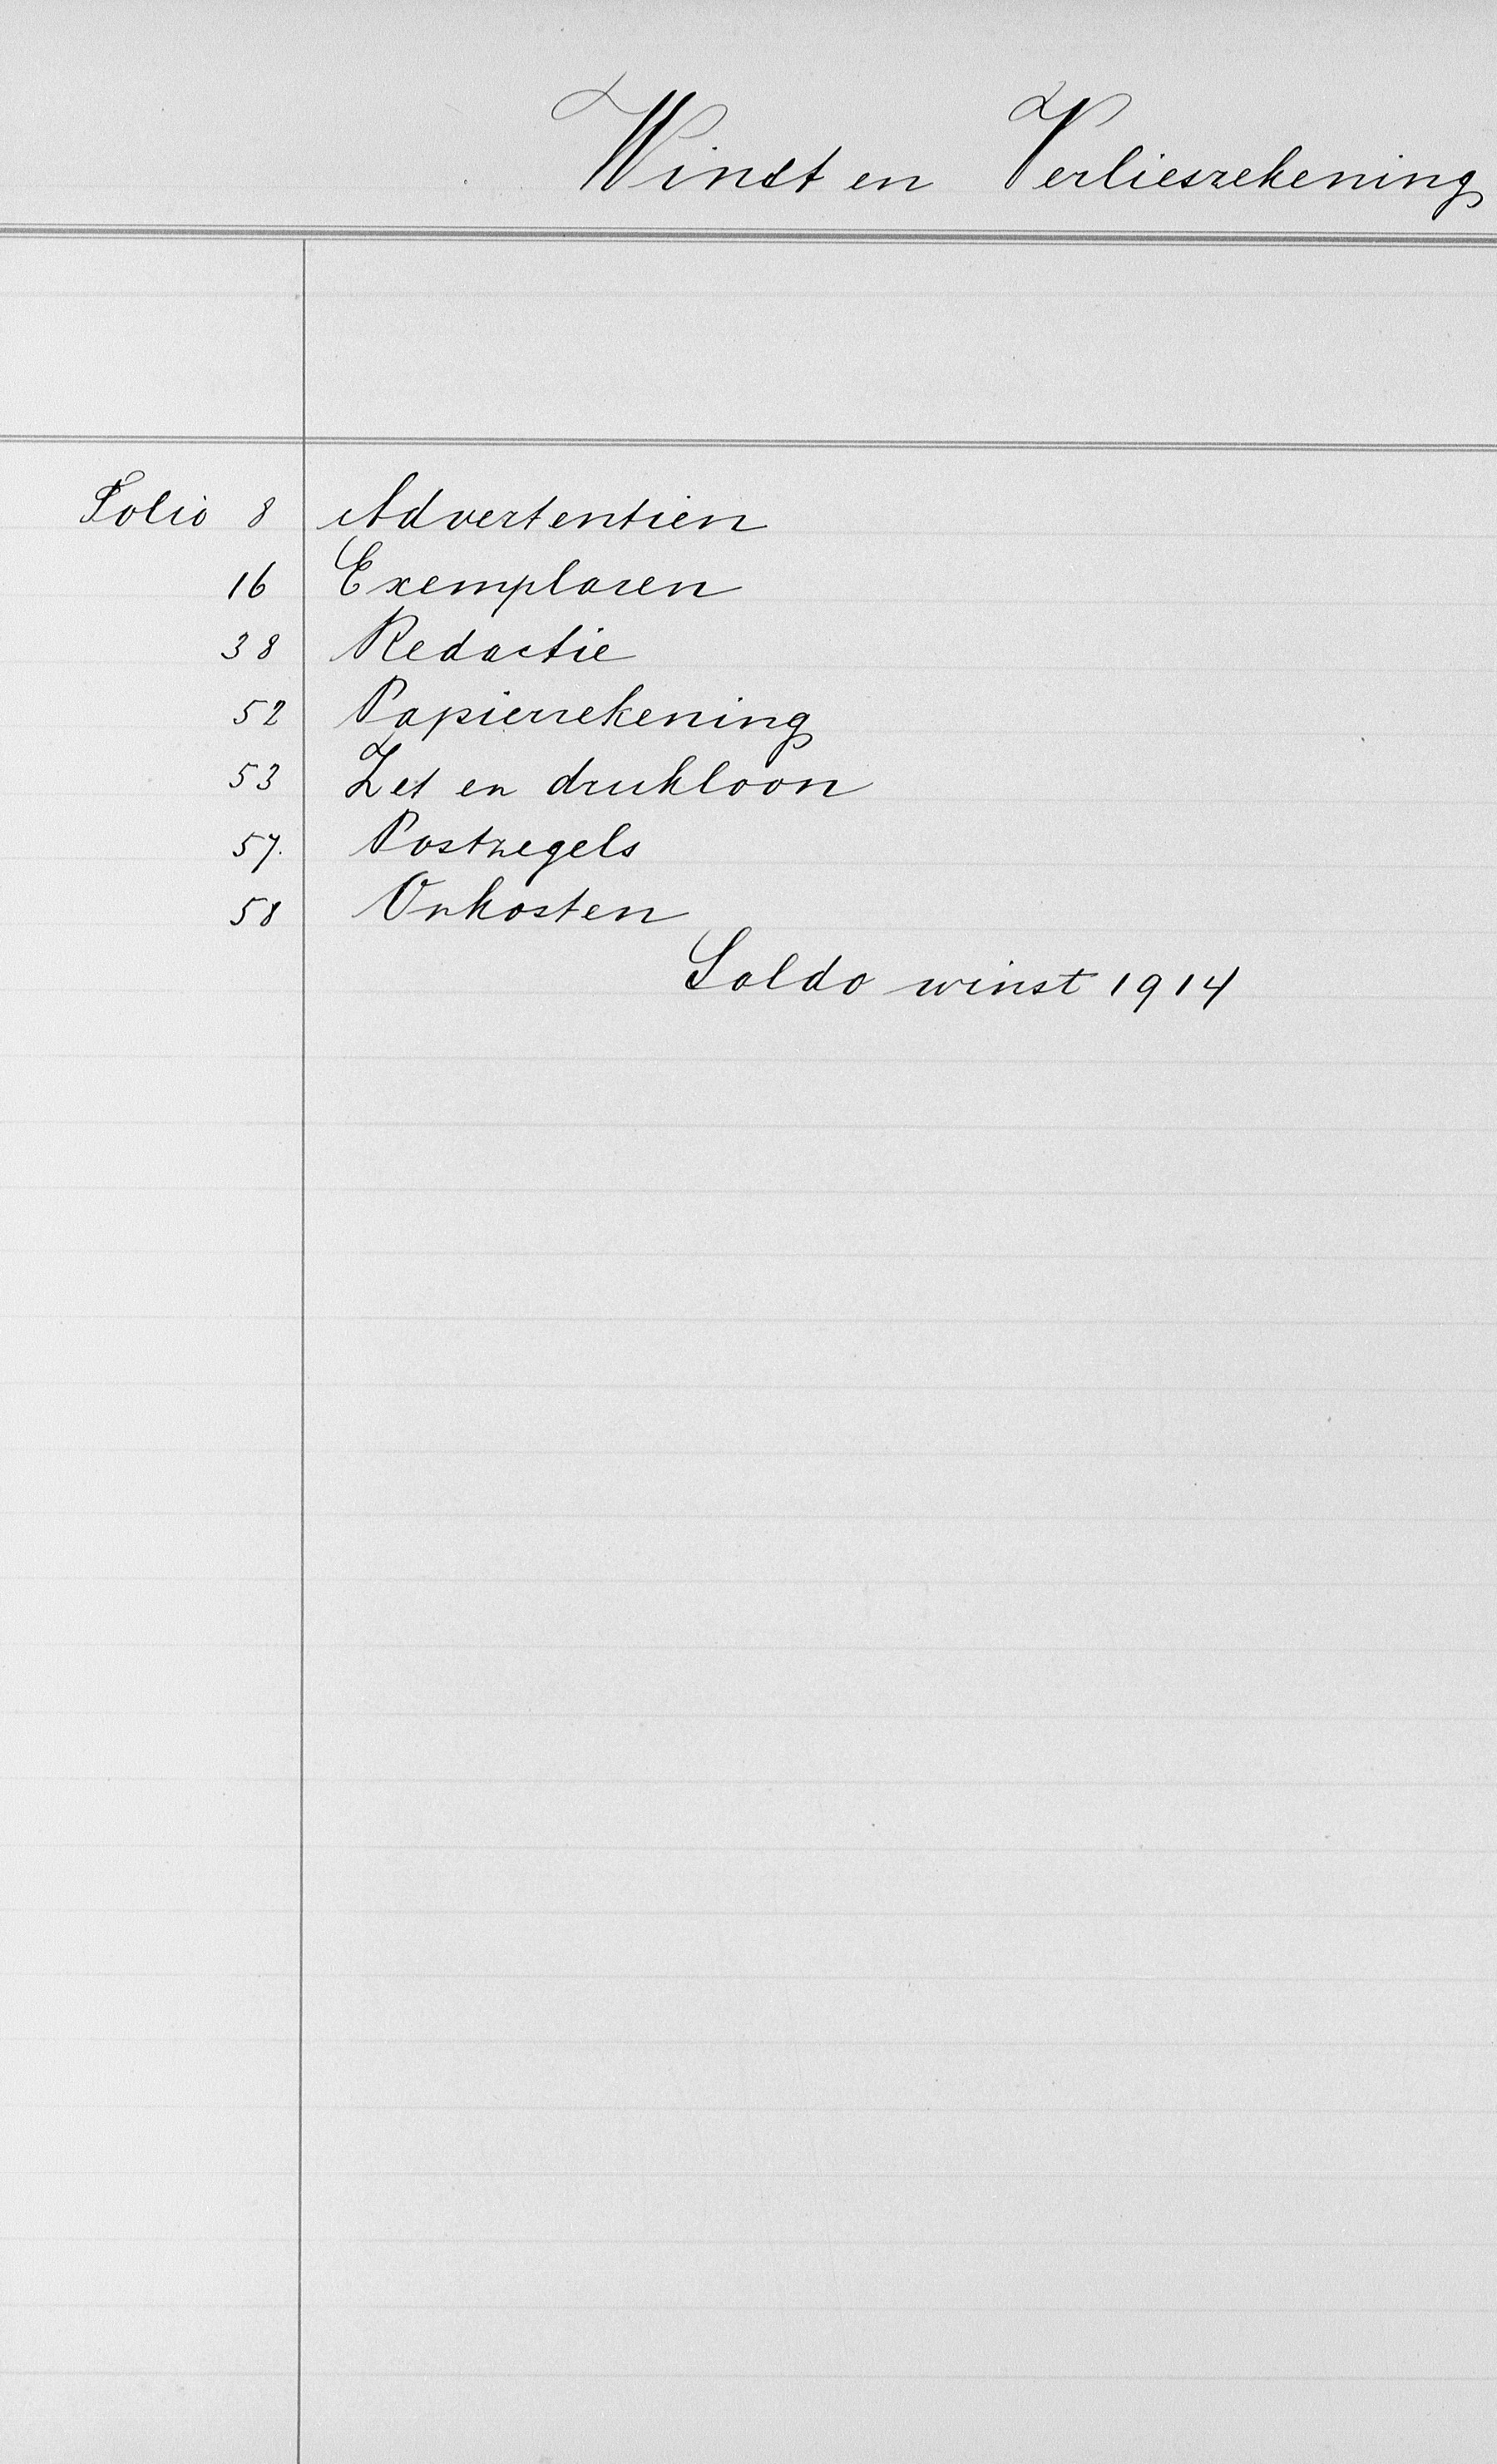 Winst en Verliesrekening
Folio 8 Advertentien
16 Exemplaren
38 Redactie
52 Papierrekening
53 Zet en drukloon
57. Postzegels
58 Onkosten
Saldo winst 1914